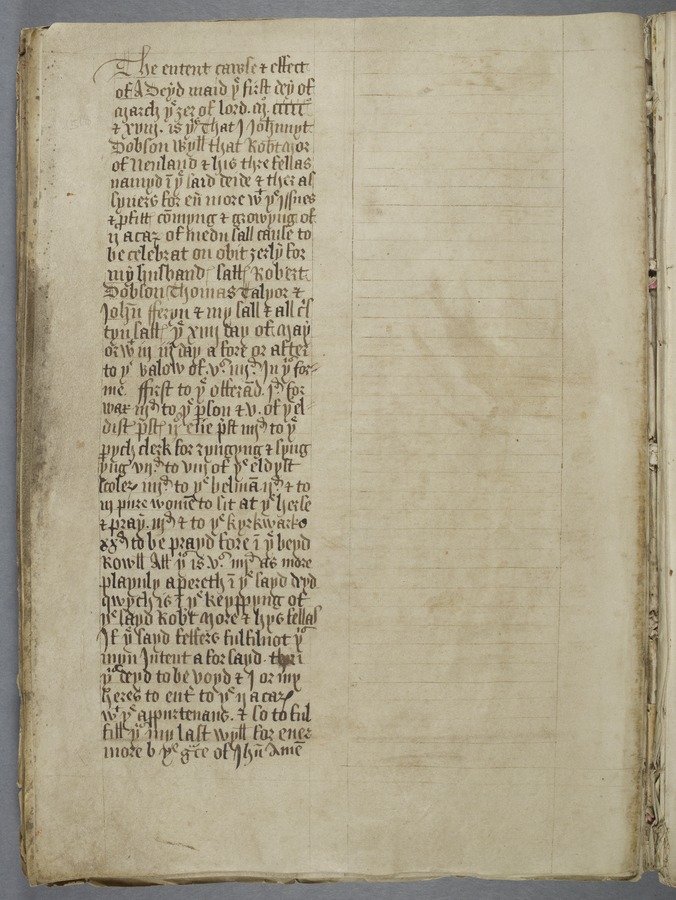 The entent cawse & effect
of A Deyd maid yͤ first dey of
march yͤ ȝer of lord. mͥ. cccc
& xviij. is yͭ That I Johnnyt
Dobson wyll that Robt mor
of Neuland & his thre fellas
namyd ī yͤ said deide & ther as
syners for eū more wͭ yͤ issues
& ꝓfitt cōmyng & growyng of
ij acaz of medu sall cause to
be celebrat on obit ȝerly for
my husband sall Robert
Dobson Thomas Talyor &
John fferyn & my sall & all cͥs
tyn sall yͤ xiiij day of may
or wͭ in iij day a fore or after
to yͤ valow of. vˢ. iiijᵈ. In yͥ for-
me. ffirst to yͤ offerād. jᵈ. for
wax iijᵈ to yͤ ꝑson & v. of yͤ el-
dist pͥst ij elie pͥst iiijᵈ to yͤ
pych clerk for ryngyng & syng
yng vijᵈ to viij of yͤ eldyst
scoler iiijᵈ to yͤ belmā ijᵈ & to
iij pure womē to sit at yͤ herse
& pray. iijᵈ & to yͤ kyrkwarks
xxᵈ to be prayd fore ī yͤ beyd
Rowll All yͥ is vˢ. iiijᵈ as more
playnly apereth ī yͤ sayd deyd
qwych is ī yͤ keyppyng of
yͤ sayd Robt more & hys fellas
If yͤ sayd feffers fulfil not yͥ
myn Intent a for sayd. then ī
yͤ deyd to be voyd & I or my
heres to ent to yͤ ij acaz
wͭ yͤ appurtenans. & so to ful
fill yͥ my last wyll for euer
more b yͤ gͣce of Jhū Amē